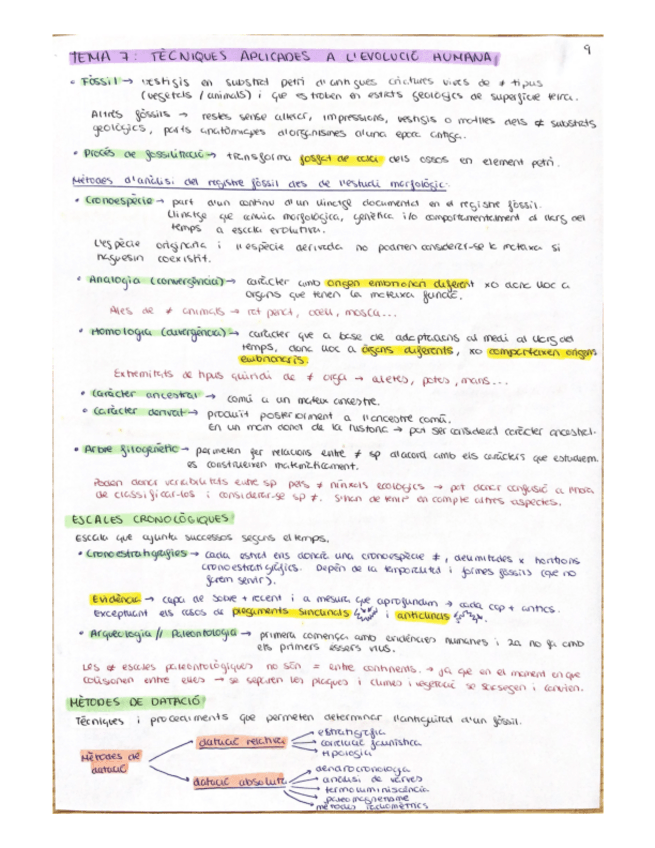 9
TEMA 7: TÈCNIQUES APLICADES A L'EVOLUCIÓ HUMANA
• Fòssil → vestigis en substrat petri d'antigues criatures vives de ≠ tipus
(vegetals / animals) i que es troben en estrats geològics de superfície terra.
Altres fòssils → restes sense alterar, impressions, vestigis o motlles dels ≠ substrats
geològics, parts anatòmiques d'organismes d'una època antiga.
• Procés de fossilització → transforma fosfat de calci dels ossos en element petri.
Mètodes d'anàlisi del registre fòssil des de l'estudi morfològic:
• Cronoespècie → part d'un continu d'un llinatge documentat en el registre fòssil.
Llinatge que canvia morfològica, genètica i/o comportamentalment al llarg del
temps a escala evolutiva.
L'espècie originària i l'espècie derivada no podrien considerar-se la mateixa si
haguessin coexistit.
• Analogia (convergència) → caràcter amb origen embrionari diferent xo dona lloc a
òrgans que tenen la mateixa funció.
Ales de ≠ animals → rat penat, ocell, mosca...
• Homologia (divergència) → caràcter que a base de adaptacions al medi al llarg del
temps, dona lloc a òrgans diferents, xo comparteixen origens
embrionaris.
Extremitats de tipus quiridi de ≠ orga → aletes, potes, mans...
• Caràcter ancestral → comú a un mateix ancestre.
• Caràcter derivat → produit posteriorment a l'ancestre comú.
En un mom donat de la història → pot ser considerat caràcter ancestral.
• Arbre filogenètic → permeten fer relacions entre ≠ sp d'acord amb els caràcters que estudiem.
es construeixen matemàticament.
Poden donar variabilitats entre sp pels ≠ nínxols ecològics → pot donar confusió a l'hora
de classificar-los i considerar-se sp ≠. S'han de tenir en compte altres aspectes.
ESCALES CRONOLÒGIQUES
Escala que ajunta successos segons el temps.
• Cronoestratigrafies → cada estrat ens dona una cronoespècie ≠, delimitades x horitzons
cronoestratigràfics. Depèn de la temporalitat i formes fòssils (que no
facin servir).
Evidència → capa de sobre + recent i a mesura que aprofundim → cada cop + antics.
Exceptuant els casos de plegaments sinclinals i anticlinals
• Arqueologia // Paleontologia → primera comença amb evidències humanes i 2a no ja amb
els primers éssers vius.
Les ≠ escales paleontològiques no són = entre continents. → ja que en el moment en que
colisionen entre elles → se separen les plaques i climes i vegetació se
MÈTODES DE DATACIÓ
Tècniques i procediments que permeten determinar l'antiguitat d'un fòssil.
Mètodes de
datació
datació relativa
estratigrafia
correlació faunística
tipologia
datació absoluta
dendrocronologia
anàlisi de varves
termoluminiscència
paleomagnetisme
mètodes radiomètrics